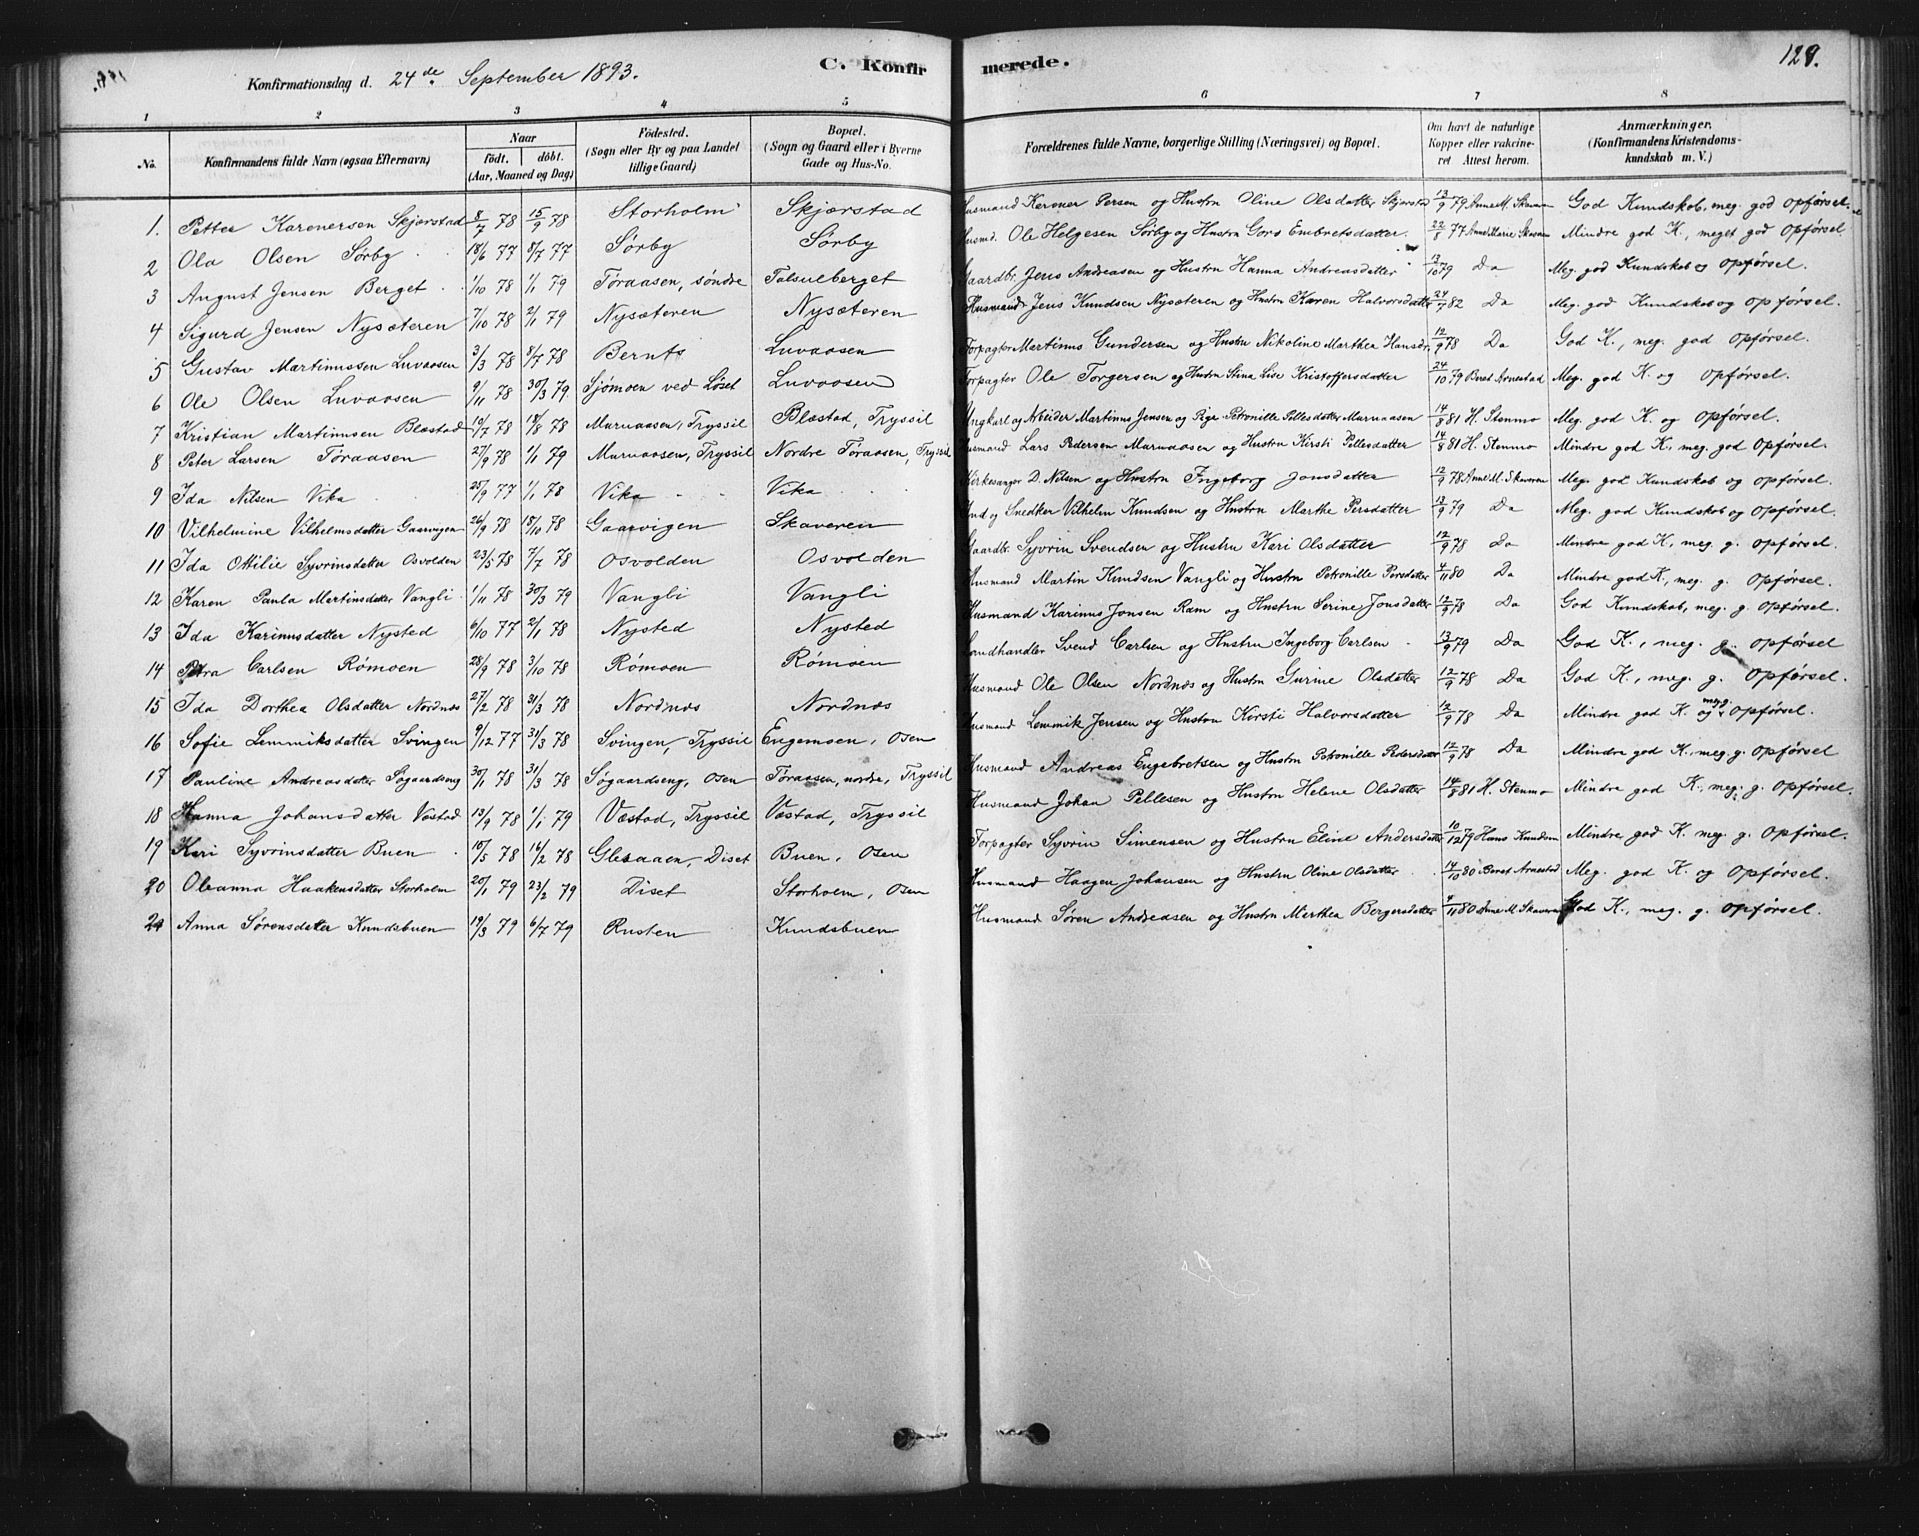 Konfirmationsdag d. 24de September 1893.
C. Konfirmerede.
129.
1 2 3 4 5 6 7 8
No. Konfirmandens fulde Navn (ogsaa Efternavn) Naar født, døbt. (Aar, Maaned og Dag) Födested. (Sogn eller By og paa Landet tillige Gaard) Bopæl. (Sogn og Gaard eller i Byerne Gade og Hus-No. Forældrenes fulde Navne, borgerlige Stilling (Næringsvei) og Bopæl. Om havt de naturlige Kopper eller vaccineret Attest herom. Anmærkninger. (Konfirmandens Kristendomskundskab m. V.)
1. Petter Karenersen Skjærstad 8/7 78 15/9 78 Storholm Skjærstad Husmand Kerener Persen og Hustru Oline Olsdatter Skjærstad 13/9 79 Anne M. Skaveren God Kundskab, meg. god Opførsel.
2 Ola Olsen Sørby 18/6 77 8/7 77 Sørby Sørby Husmd. Ole Helgesen Sørby og Hustru Goro Embretsdatter. 22/8 77 Anne Marie Skaveren Mindre god K., meget god Opførsel
3 August Jensen Berget 1/10 78 1/1 79 Töraasen, söndre Talsulberget Gaardbr. Jens Andreasen og Hustru Hanna Andreasdatter 13/10 79 Da Meg. god Kundskab og Opførsel.
4 Sigurd Jensen Nysæteren 7/10 78 2/1 79 Nysæteren Nysæteren Husmand Jens Knudsen Nysæteren og Hustru Karen Halvorsdatter 24/7 82 Da Meg. god Kundskab og Opførsel.
5 Gustav Martinussen Luvaasen 3/3 78 8/7 78 Bernts Luvaasen Forpagter Martinus Gundersen og Hustru Nikoline Marthea Hansdr. 12/9 78 Da God K., meg. god Opførsel.
6 Ole Olsen Luvaasen 9/11 78 30/3 79 Sjømoen ved Løset Luvaasen Forpagter Ole Torgersen og Hustru Stina Lise Kristoffersdatter 24/10 79 Beret Arnestad Meg. god K. og Opførsel.
7 Kristian Martinusen Blæstad 10/7 78 18/8 78 Murvaasen, Tryssil Blæstad, Tryssil Ungkarl og Arbeider Martinus Jensen og Pige Petronille Pellesdatter Murvaasen 14/8 81 H. Stenmo Meg. god K. og Opførsel.
8 Peter Larsen Töraasen 27/9 78 1/1 79 Murvaasen, Tryssil Nordre Töraasen, Tryssil Husmand Lars Pedersen Murvaasen og Hustru Kirsti Pellesdatter 14/8 81 H. Stenmo Mindre god K., meg. god Opførsel.
9 Ida Nilsen Vika 25/9 77 1/1 78 Vika Vika Kirkesanger D. Nilsen og Hustru Ingeborg Jonsdatter 12/9 78 Anne M. Skaveren Meg. god Kundskab og Opførsel.
10 Vilhelmine Vilhelmsdatter Gaarvigen 26/9 78 18/10 78 Gaarvigen Skaveren Ind og Snedker Vilhelm Knudsen og Hustru Marthe Persdatter 13/9 79 Da Meg. god Kundskab og Opførsel.
11 Ida Ottilie Syvrinsdatter Osvolden 23/5 78 7/7 78 Osvolden Osvolden Gaardbr. Syvrin Svendsen og Hustru Kari Olsdatter 12/9 78 Da Mindre god K, meg. g. Opførsel.
12 Karen Paula Martinsdatter Vangli 1/11 78 30/3 79 Vangli Vangli Husmand Martin Knudsen Vangli og Hustru Petronille Persdatter 4/11 80 Da Mindre god K., meg. g. Opførsel.
13 Ida Karinusdatter Nysted 6/10 77 2/1 78 Nysted Nysted Husmand Karinus Jonsen Ram og Hustru Serine Jonsdatter 12/9 78 Da God Kundskab, meg. g. Opførsel.
14 Petra Carlsen Römoen 28/9 78 3/10 78 Römoen Römoen Landhandler Svend Carlsen og Hustru Ingeborg Carlsen 13/9 79 Da God K., meg. g. Opførsel
15 Ida Dorthea Olsdatter Nordnæs 27/2 78 31/3 78 Nordnæs Nordnæs Husmand Ole Olsen Nordnæs og Hustru Gurine Olsdatter 12/9 78 Da God K., meg. g. Opførsel.
16 Sofie Lemmiksdatter Svingen 9/12 77 31/3 78 Svingen, Tryssil Engemoen, Osen Husmand Lemmik Jensen og Hustru Kirsti Halvorsdatter 12/9 78 Da Mindre god K. og meg. g. Opførsel.
17 Pauline Andreasdatter Søgaardseng 30/1 78 31/3 78 Søgaardseng, Osen Töraasen, nordre, Tryssil Husmand Andreas Engebretsen og Hustru Petronille Pedersdatter 12/9 78 Da Mindre god K., meg. g. Opførsel
18 Hanna Johansdatter Væstad 13/9 78 1/1 79 Væstad, Tryssil Væstad, Tryssil Husmand Johan Pellesen og Hustru Helene Olsdatter 14/8 81 H. Stenmo Mindre god K., meg. g. Opførsel.
19 Kari Syvrinsdatter Buen 10/5 78 16/2 78 Glesaaen, Diset Buen, Osen Forpagter Syvrin Simensen og Hustru Eline Andersdatter 10/12 79 Hans Knudsen Mindre god K. meg. g. Opførsel.
20 Oleanna Haakensdatter Storholm 20/1 79 23/2 79 Diset Storholm, Osen Husmand Haagen Johansen og Hustru Oline Olsdatter 14/10 80 Beret Arnestad Meg. god K. og Opførsel.
21 Anna Sørensdatter Knudsbuen 19/3 79 6/7 79 Rusten Knudsbuen Husmand Søren Andreasen og Hustru Marthea Bergersdatter 4/11 80 Anne M. Skaveren God K., meg. g. Opførsel.